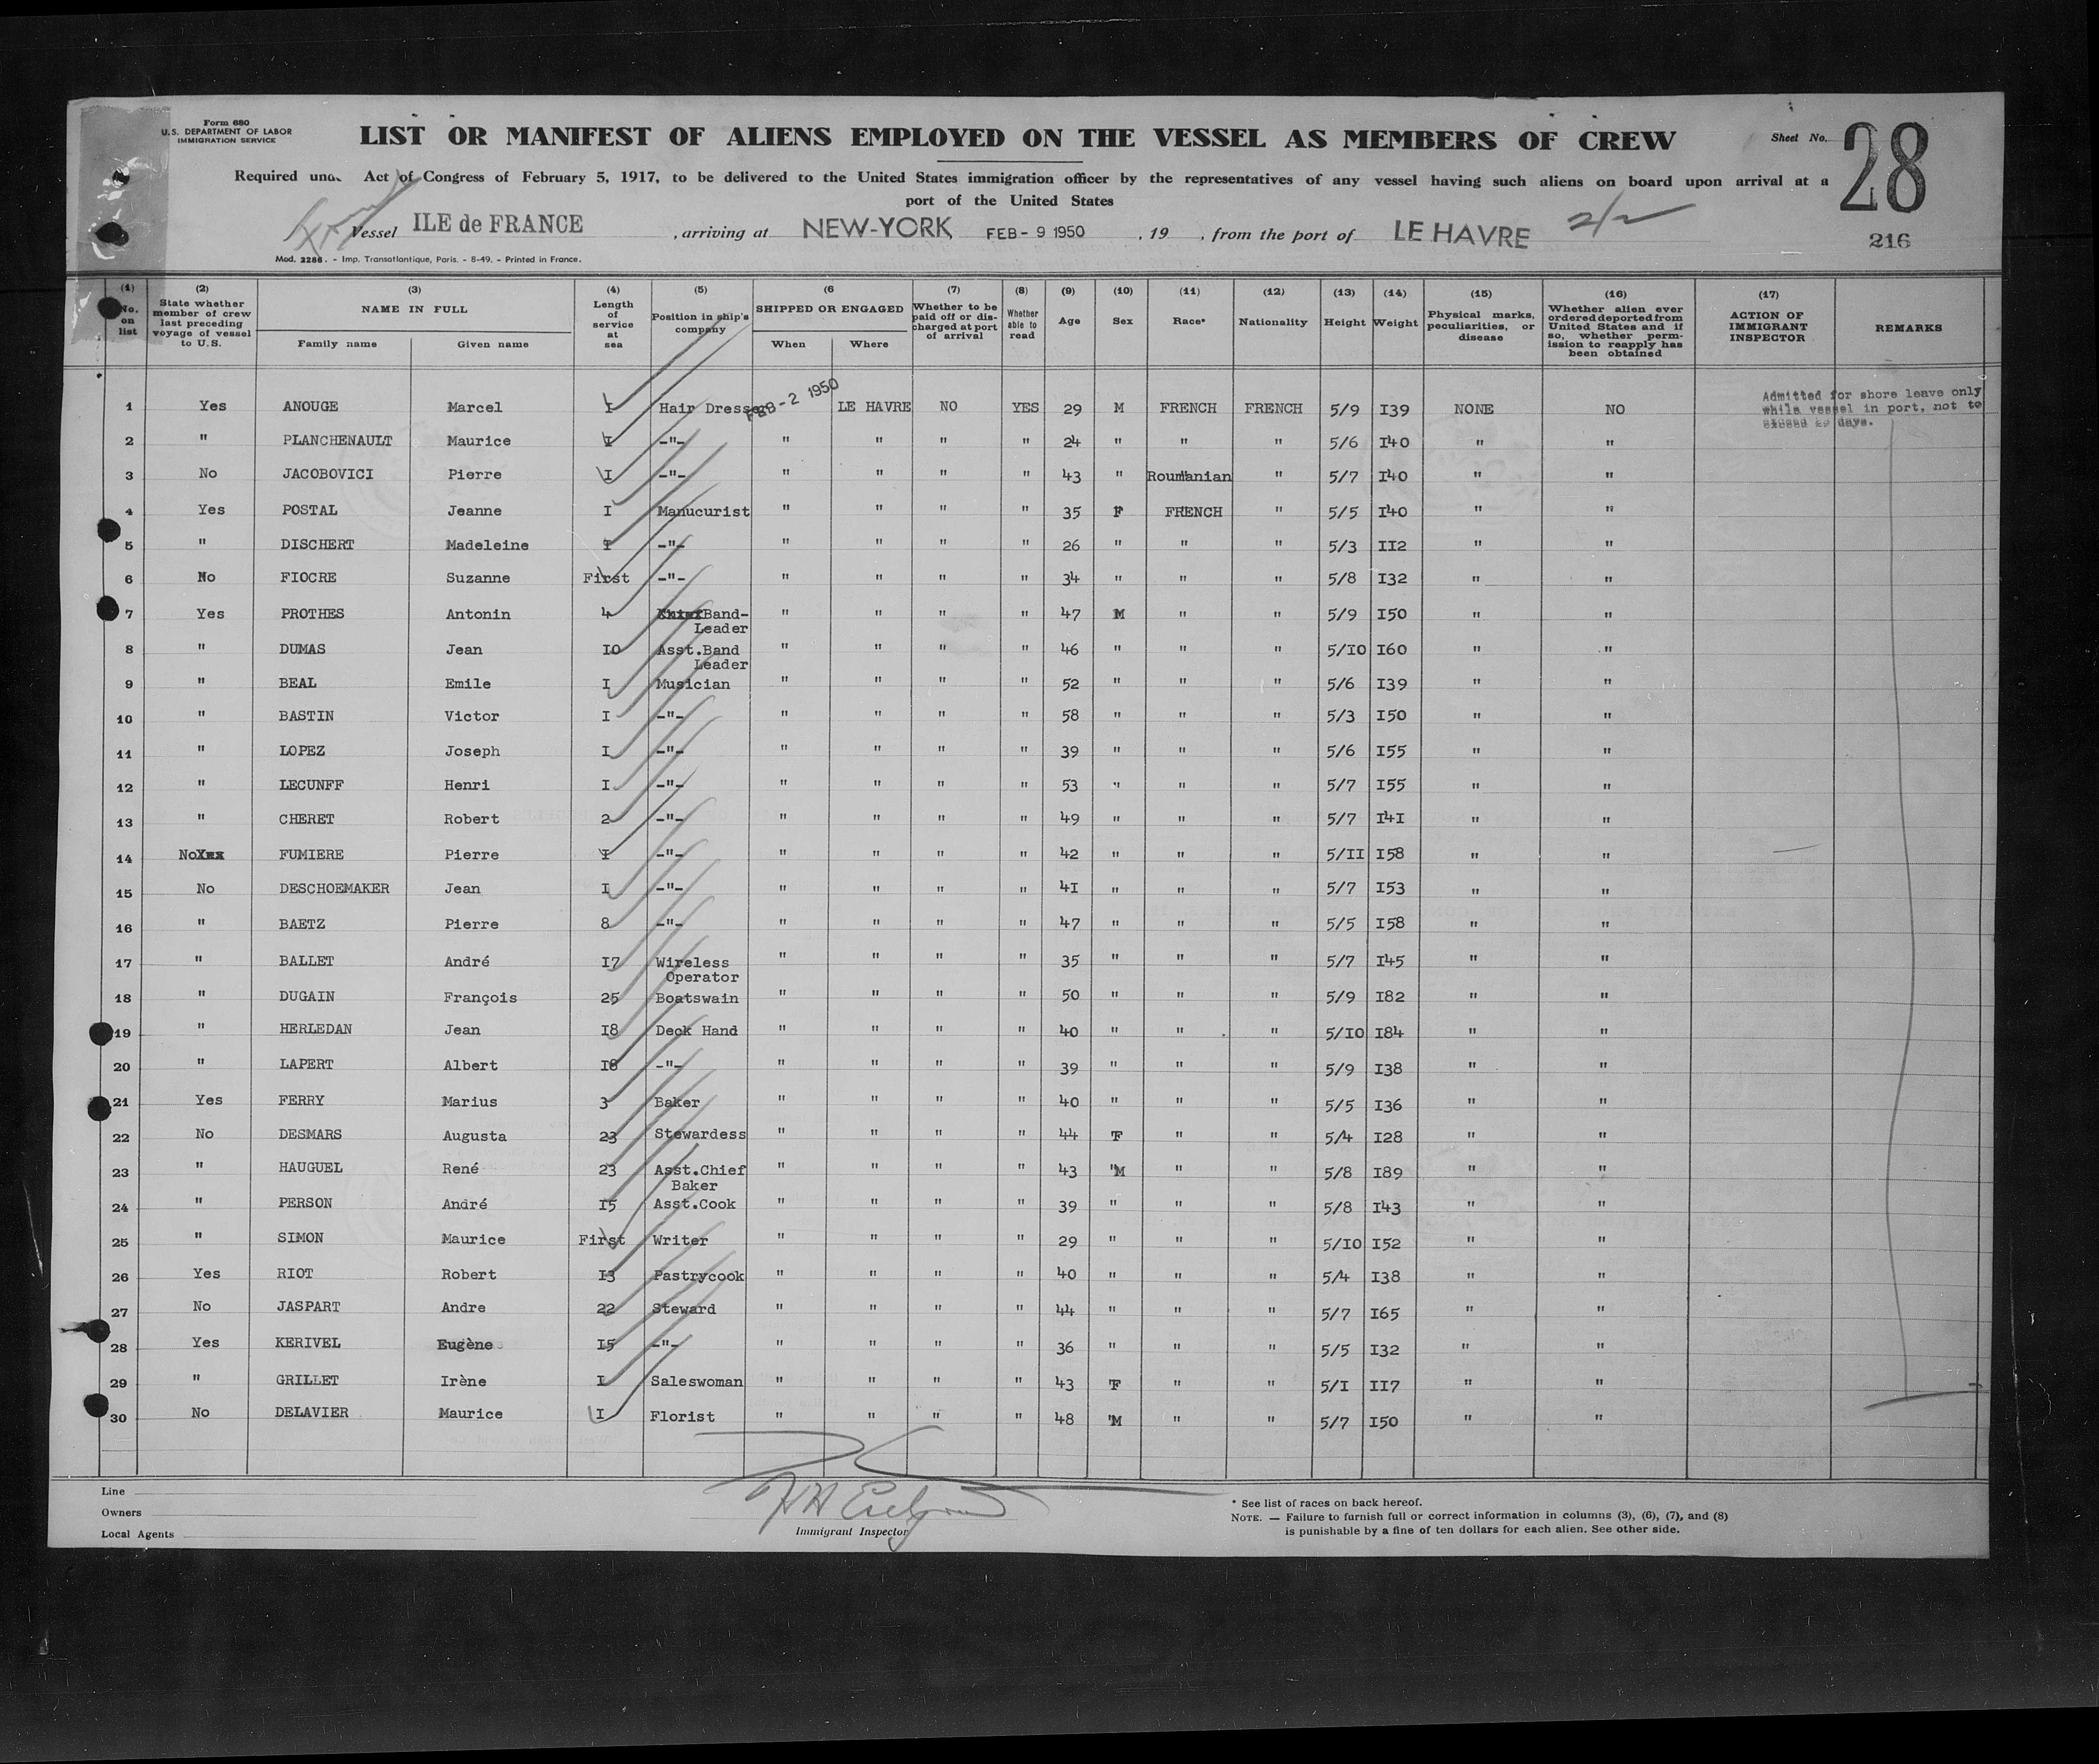 Form 680
U.S. DEPARTMENT OF LABOR
IMMIGRATION SERVICE
LIST OR MANIFEST OF ALIENS EMPLOYED ON THE VESSEL AS MEMBERS OF CREW
Sheet No. 28
Required unde Act of Congress of February 5, 1917, to be delivered to the United States immigration officer by the representatives of any vessel having such aliens on board upon arrival at a
port of the United States
Vessel ILE de FRANCE , arriving at NEW-YORK, FEB - 9 1950 , 19 , from the port of LE HAVRE 2/2
216
Mod. 2286. - Imp. Transatlantique, Paris. - 8-49. - Printed in France.
(1) No. on list (2) State whether member of crew last preceding voyage of vessel to U.S. (3) NAME IN FULL Family name Given name (4) Length of service at sea (5) Position in ship's company (6 SHIPPED OR ENGAGED When Where (7) Whether to be paid off or discharged at port of arrival (8) Whether able to read (9) Age (10) Sex (11) Race* (12) Nationality (13) Height (14) Weight (15) Physical marks, peculiarities, or disease (16) Whether alien ever ordered deported from United States and if so, whether permission to reapply has been obtained (17) ACTION OF IMMIGRANT INSPECTOR REMARKS
1 Yes ANOUGE Marcel I Hair Dresser FEB - 2 1950 LE HAVRE NO YES 29 M FRENCH FRENCH 5/9 I39 NONE NO Admitted for shore leave only while vessel in port, not to exceed 29 days.
2 " PLANCHENAULT Maurice I -"- " " " " 24 " " " 5/6 I40 " "
3 No JACOBOVICI Pierre I -"- " " " " 43 " Roumanian " 5/7 I40 " "
4 Yes POSTAL Jeanne I Manucurist " " " " 35 F FRENCH " 5/5 I40 " "
5 " DISCHERT Madeleine I -"- " " " " 26 " " " 5/3 II2 " "
6 No FIOCRE Suzanne First -"- " " " " 34 " " " 5/8 I32 " "
7 Yes PROTHES Antonin 4 Band-Leader " " " " 47 M " " 5/9 I50 " "
8 " DUMAS Jean IO Asst.Band Leader " " " " 46 " " " 5/IO I60 " "
9 " BEAL Emile I Musician " " " " 52 " " " 5/6 I39 " "
10 " BASTIN Victor I -"- " " " " 58 " " " 5/3 I50 " "
11 " LOPEZ Joseph I -"- " " " " 39 " " " 5/6 I55 " "
12 " LECUNFF Henri I -"- " " " " 53 " " " 5/7 I55 " "
13 " CHERET Robert 2 -"- " " " " 49 " " " 5/7 I4I " "
14 No FUMIERE Pierre I -"- " " " " 42 " " " 5/II I58 " "
15 No DESCHOEMAKER Jean I -"- " " " " 4I " " " 5/7 I53 " "
16 " BAETZ Pierre 8 -"- " " " " 47 " " " 5/5 I58 " "
17 " BALLET André I7 Wireless Operator " " " " 35 " " " 5/7 I45 " "
18 " DUGAIN François 25 Boatswain " " " " 50 " " " 5/9 I82 " "
19 " HERLEDAN Jean I8 Deck Hand " " " " 40 " " " 5/IO I84 " "
20 " LAPERT Albert I8 -"- " " " " 39 " " " 5/9 I38 " "
21 Yes FERRY Marius 3 Baker " " " " 40 " " " 5/5 I36 " "
22 No DESMARS Augusta 23 Stewardess " " " " 44 F " " 5/4 I28 " "
23 " HAUGUEL René 23 Asst.Chief Baker " " " " 43 "M " " 5/8 I89 " "
24 " PERSON André I5 Asst.Cook " " " " 39 " " " 5/8 I43 " "
25 " SIMON Maurice First Writer " " " " 29 " " " 5/IO I52 " "
26 Yes RIOT Robert I3 Pastrycook " " " " 40 " " " 5/4 I38 " "
27 No JASPART Andre 22 Steward " " " " 44 " " " 5/7 I65 " "
28 Yes KERIVEL Eugène I5 -"- " " " " 36 " " " 5/5 I32 " "
29 " GRILLET Irène I Saleswoman " " " " 43 "F " " 5/I II7 " "
30 No DELAVIER Maurice I Florist " " " " 48 "M " " 5/7 I50 " "
Line
Owners
Local Agents
Immigrant Inspector
* See list of races on back hereof.
NOTE. — Failure to furnish full or correct information in columns (3), (6), (7), and (8)
is punishable by a fine of ten dollars for each alien. See other side.